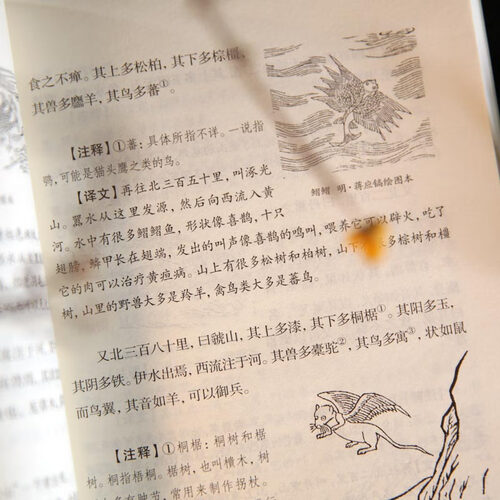 食之不瘅。其上多松柏，其下多棕橿，
其兽多麢羊，其鸟多蕃①。
【注释】①蕃：具体所指不详。一说指
鸮，可能是猫头鹰之类的鸟。
【译文】再往北三百五十里，叫涿光
山。嚣水从这里发源，然后向西流入黄
河。水中有很多鳛鳛鱼，形状像喜鹊，十只
翅膀，鳞甲长在翅端，发出的叫声像喜鹊的鸣叫，喂养它可以辟火，吃了
它的肉可以治疗黄疸病。山上有很多松树和柏树，山下 多棕树和橿
树，山里的野兽大多是羚羊，禽鸟类大多是蕃鸟。
鳛鳛 明·蒋应镐绘图本
又北三百八十里，曰虢山，其上多漆，其下多桐椐①。其阳多玉，
其阴多铁。伊水出焉，西流注于河。其兽多橐驼②，其鸟多寓③，状如鼠
而鸟翼，其音如羊，可以御兵。
【注释】①桐椐：桐树和椐
树。桐指梧桐。椐树，也叫樻木，树
多有肿节，常用来制作拐杖。